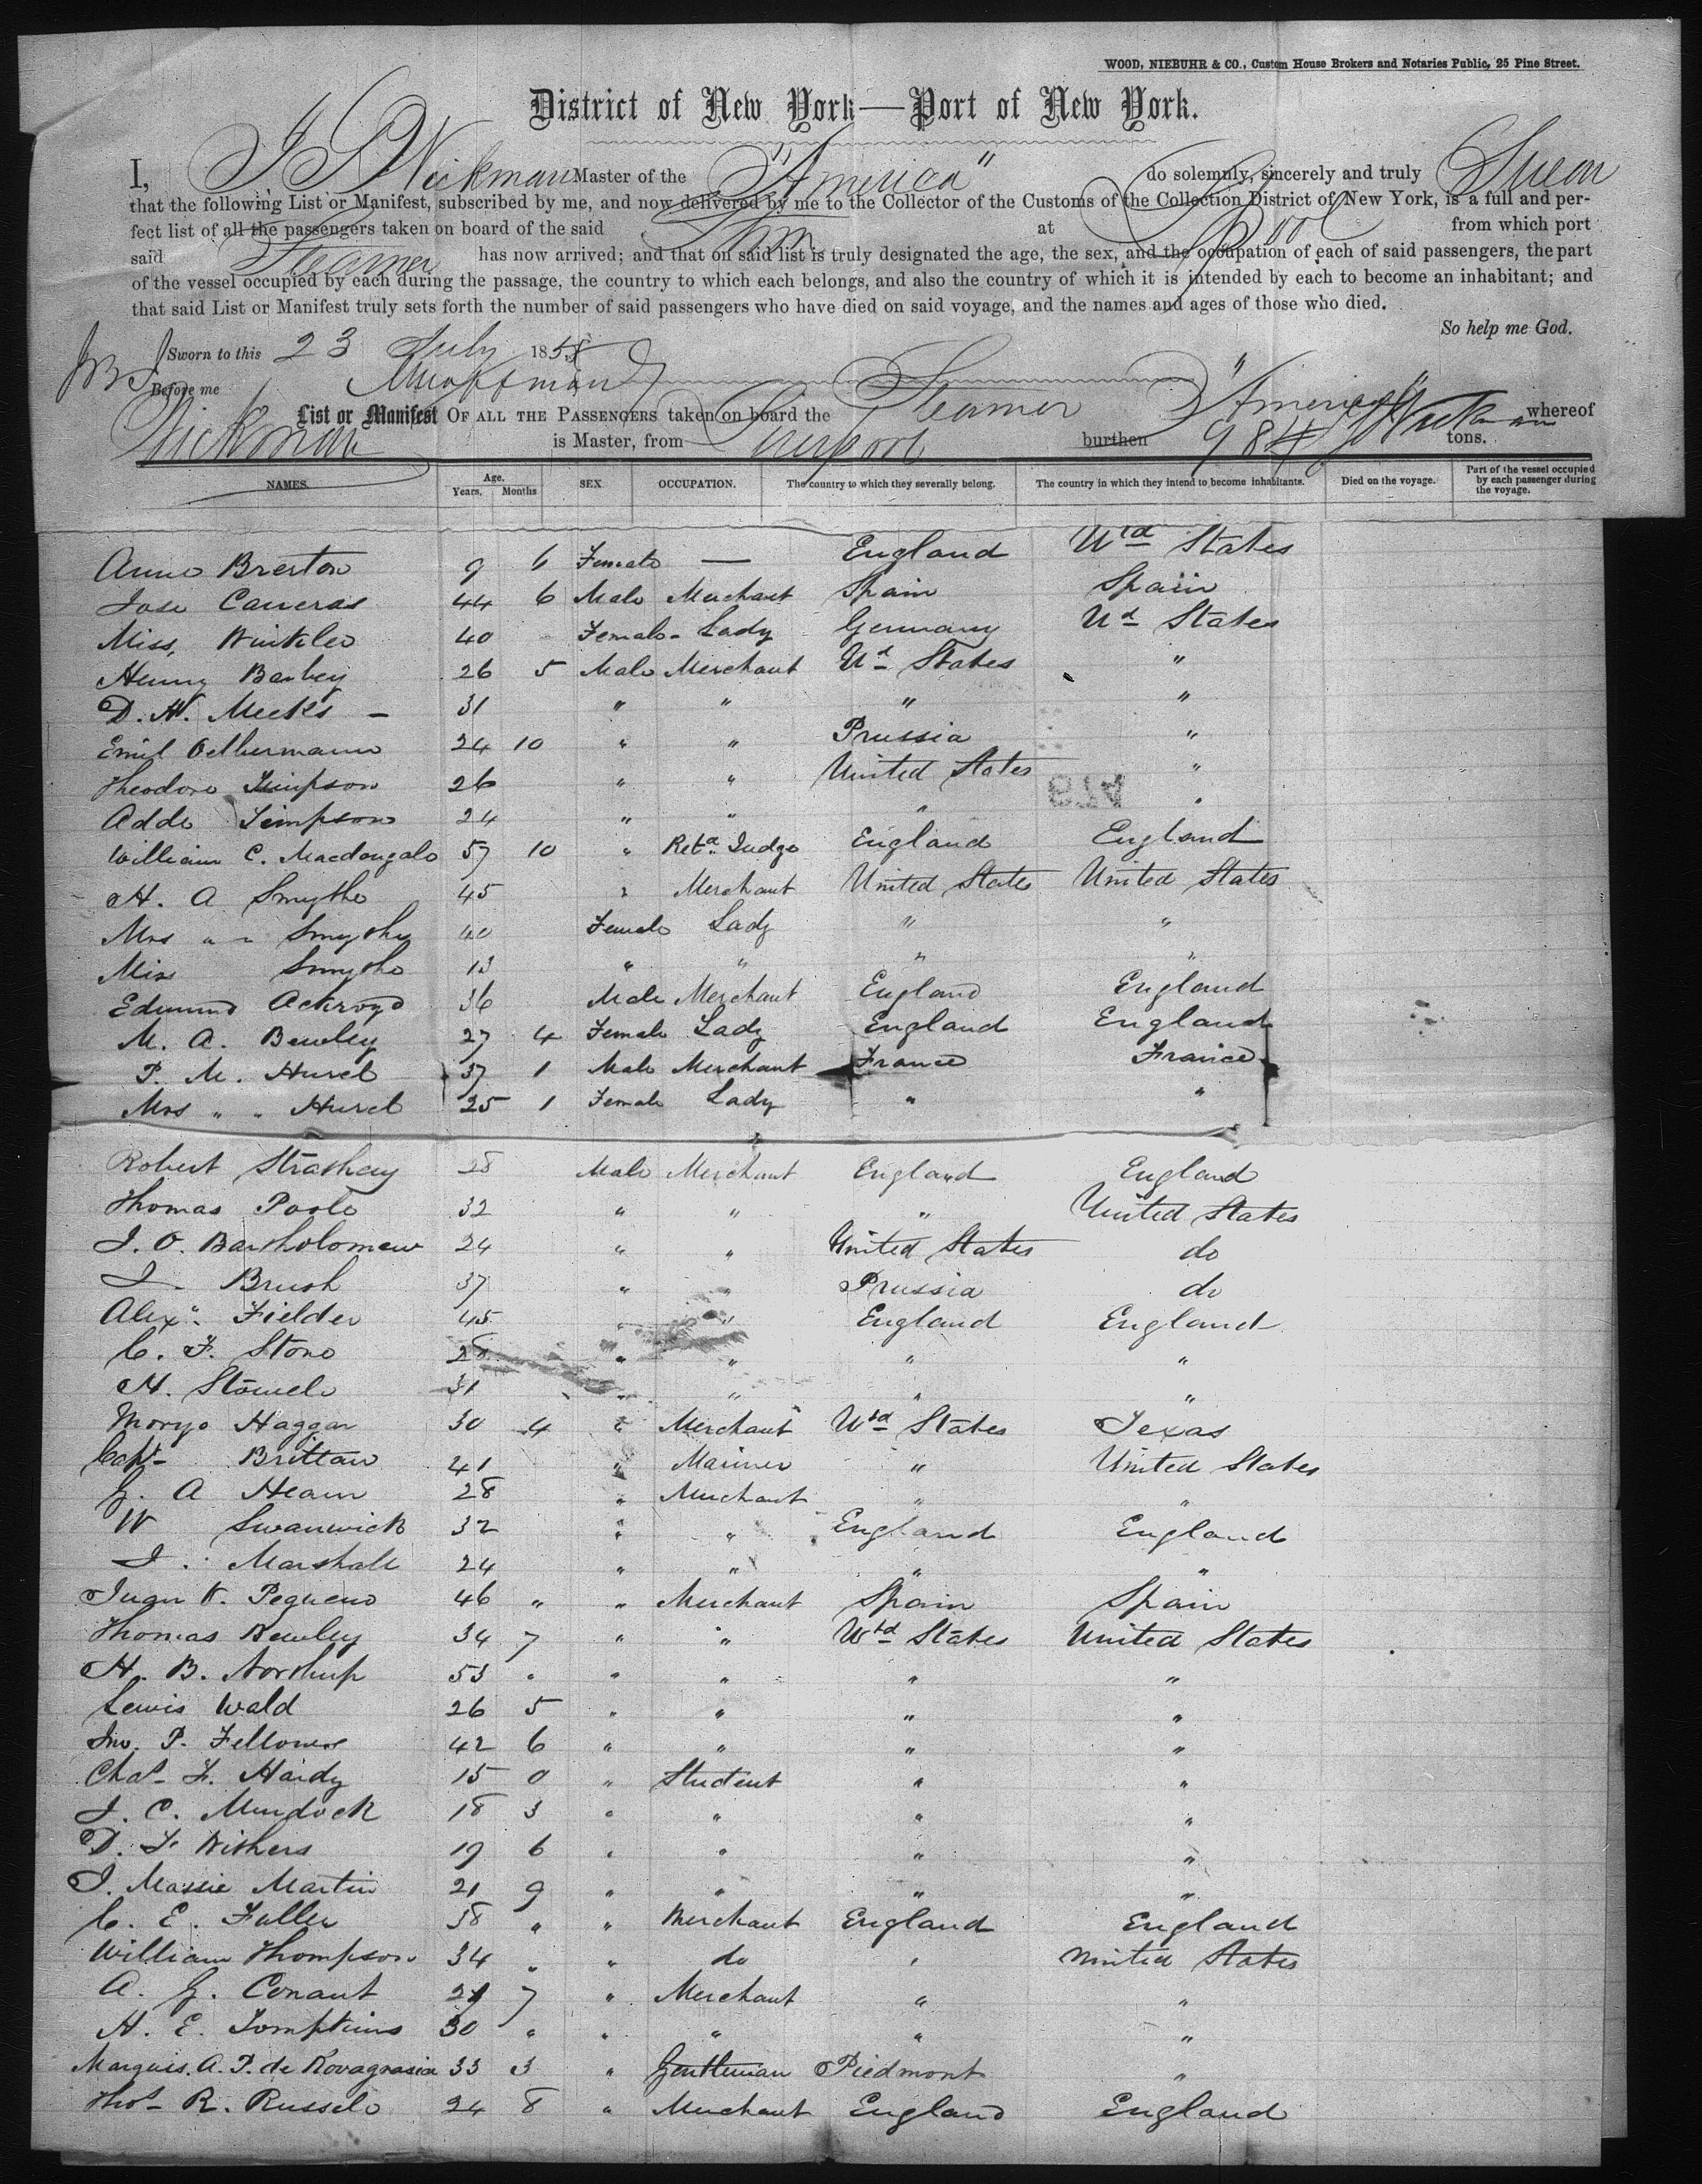 WOOD, NIEBUHR & CO., Custom House Brokers and Notaries Public, 25 Pine Street.
District of New York—Port of New York.
I, Wickman Master of the "America" do solemnly, sincerely and truly Swear
that the following List or Manifest, subscribed by me, and now delivered by me to the Collector of the Customs of the Collection District of New York, is a full and per-
fect list of all the passengers taken on board of the said Stmr at L.Pool from which port
said Steamer has now arrived; and that on said list is truly designated the age, the sex, and the occupation of each of said passengers, the part
of the vessel occupied by each during the passage, the country to which each belongs, and also the country of which it is intended by each to become an inhabitant; and
that said List or Manifest truly sets forth the number of said passengers who have died on said voyage, and the names and ages of those who died.
So help me God.
Sworn to this 23 July 1858
Before me
List or Manifest OF ALL THE PASSENGERS taken on board the Steamer "America" whereof
Wickman is Master, from Liverpool burthen 984 tons.
NAMES. Age. Years. Months SEX OCCUPATION. The country to which they severally belong. The country in which they intend to become inhabitants. Died on the voyage. Part of the vessel occupied by each passenger during the voyage.
Anne Brerton 9 6 Female — England Utd States
Jose Carreras 44 6 Male Merchant Spain Spain
Miss, Winkler 40 Female - Lady Germany Ud States
Henry Barbey 26 5 Male Merchant Ud States "
D. W. Meeks - 31 " " " "
Emil Oelbermann 24 10 " " Prussia "
Theodore Timpson 26 " " United States "
Adde Timpson 24 " " " "
William C. Macdougale 57 10 " Retd. Judge England England
H. A Smythe 45 " Merchant United States United States
Mrs " " Smythe 40 Female Lady " "
Miss Smythe 13 " " " "
Edmund Ackroyd 36 Male Merchant England England
M. A. Bewley 27 4 Female Lady England England
P. M. Hurel 37 1 Male Merchant France France
Mrs " " Hurel 25 1 Female Lady " "
Robert Strachey 28 Male Merchant England England
Thomas Poole 32 " " " United States
J. O. Bartholomew 24 " " United States do
J. Brush 37 " " Prussia do
Alexr. Fielder 45 " " England England
C. F. Stone 28 " " " "
H. Stowell 31 " " " "
Morys Haggar 30 4 " Merchant Utd States Texas
Capt- Brittan 41 " Mariner " United States
G. A Hearn 28 " Merchant " "
W Swanwick 32 " " England England
J. Marshall 24 " " " "
Juan V. Pequeno 46 " " Merchant Spain Spain
Thomas Bewley 34 7 " " Utd States United States
H. B. Northup 53 " " " " "
Lewis Wald 26 5 " " " "
Jno. P. Fellowes 42 6 " " " "
Chas- F. Hardy 15 0 " Student " "
J. C. Murdock 18 3 " " " "
D. F. Withers 19 6 " " " "
J. Massie Martin 21 9 " " " "
C. E. Fuller 38 " " Merchant England England
William Thompson 34 " " do " United States
A. G. Conant 29 7 " Merchant " "
H. E. Tompkins 30 " " " " "
Marquis. A. P. de Rovagnasia 33 3 " Gentleman Piedmont "
Thos- R. Russele 24 8 " Merchant England England